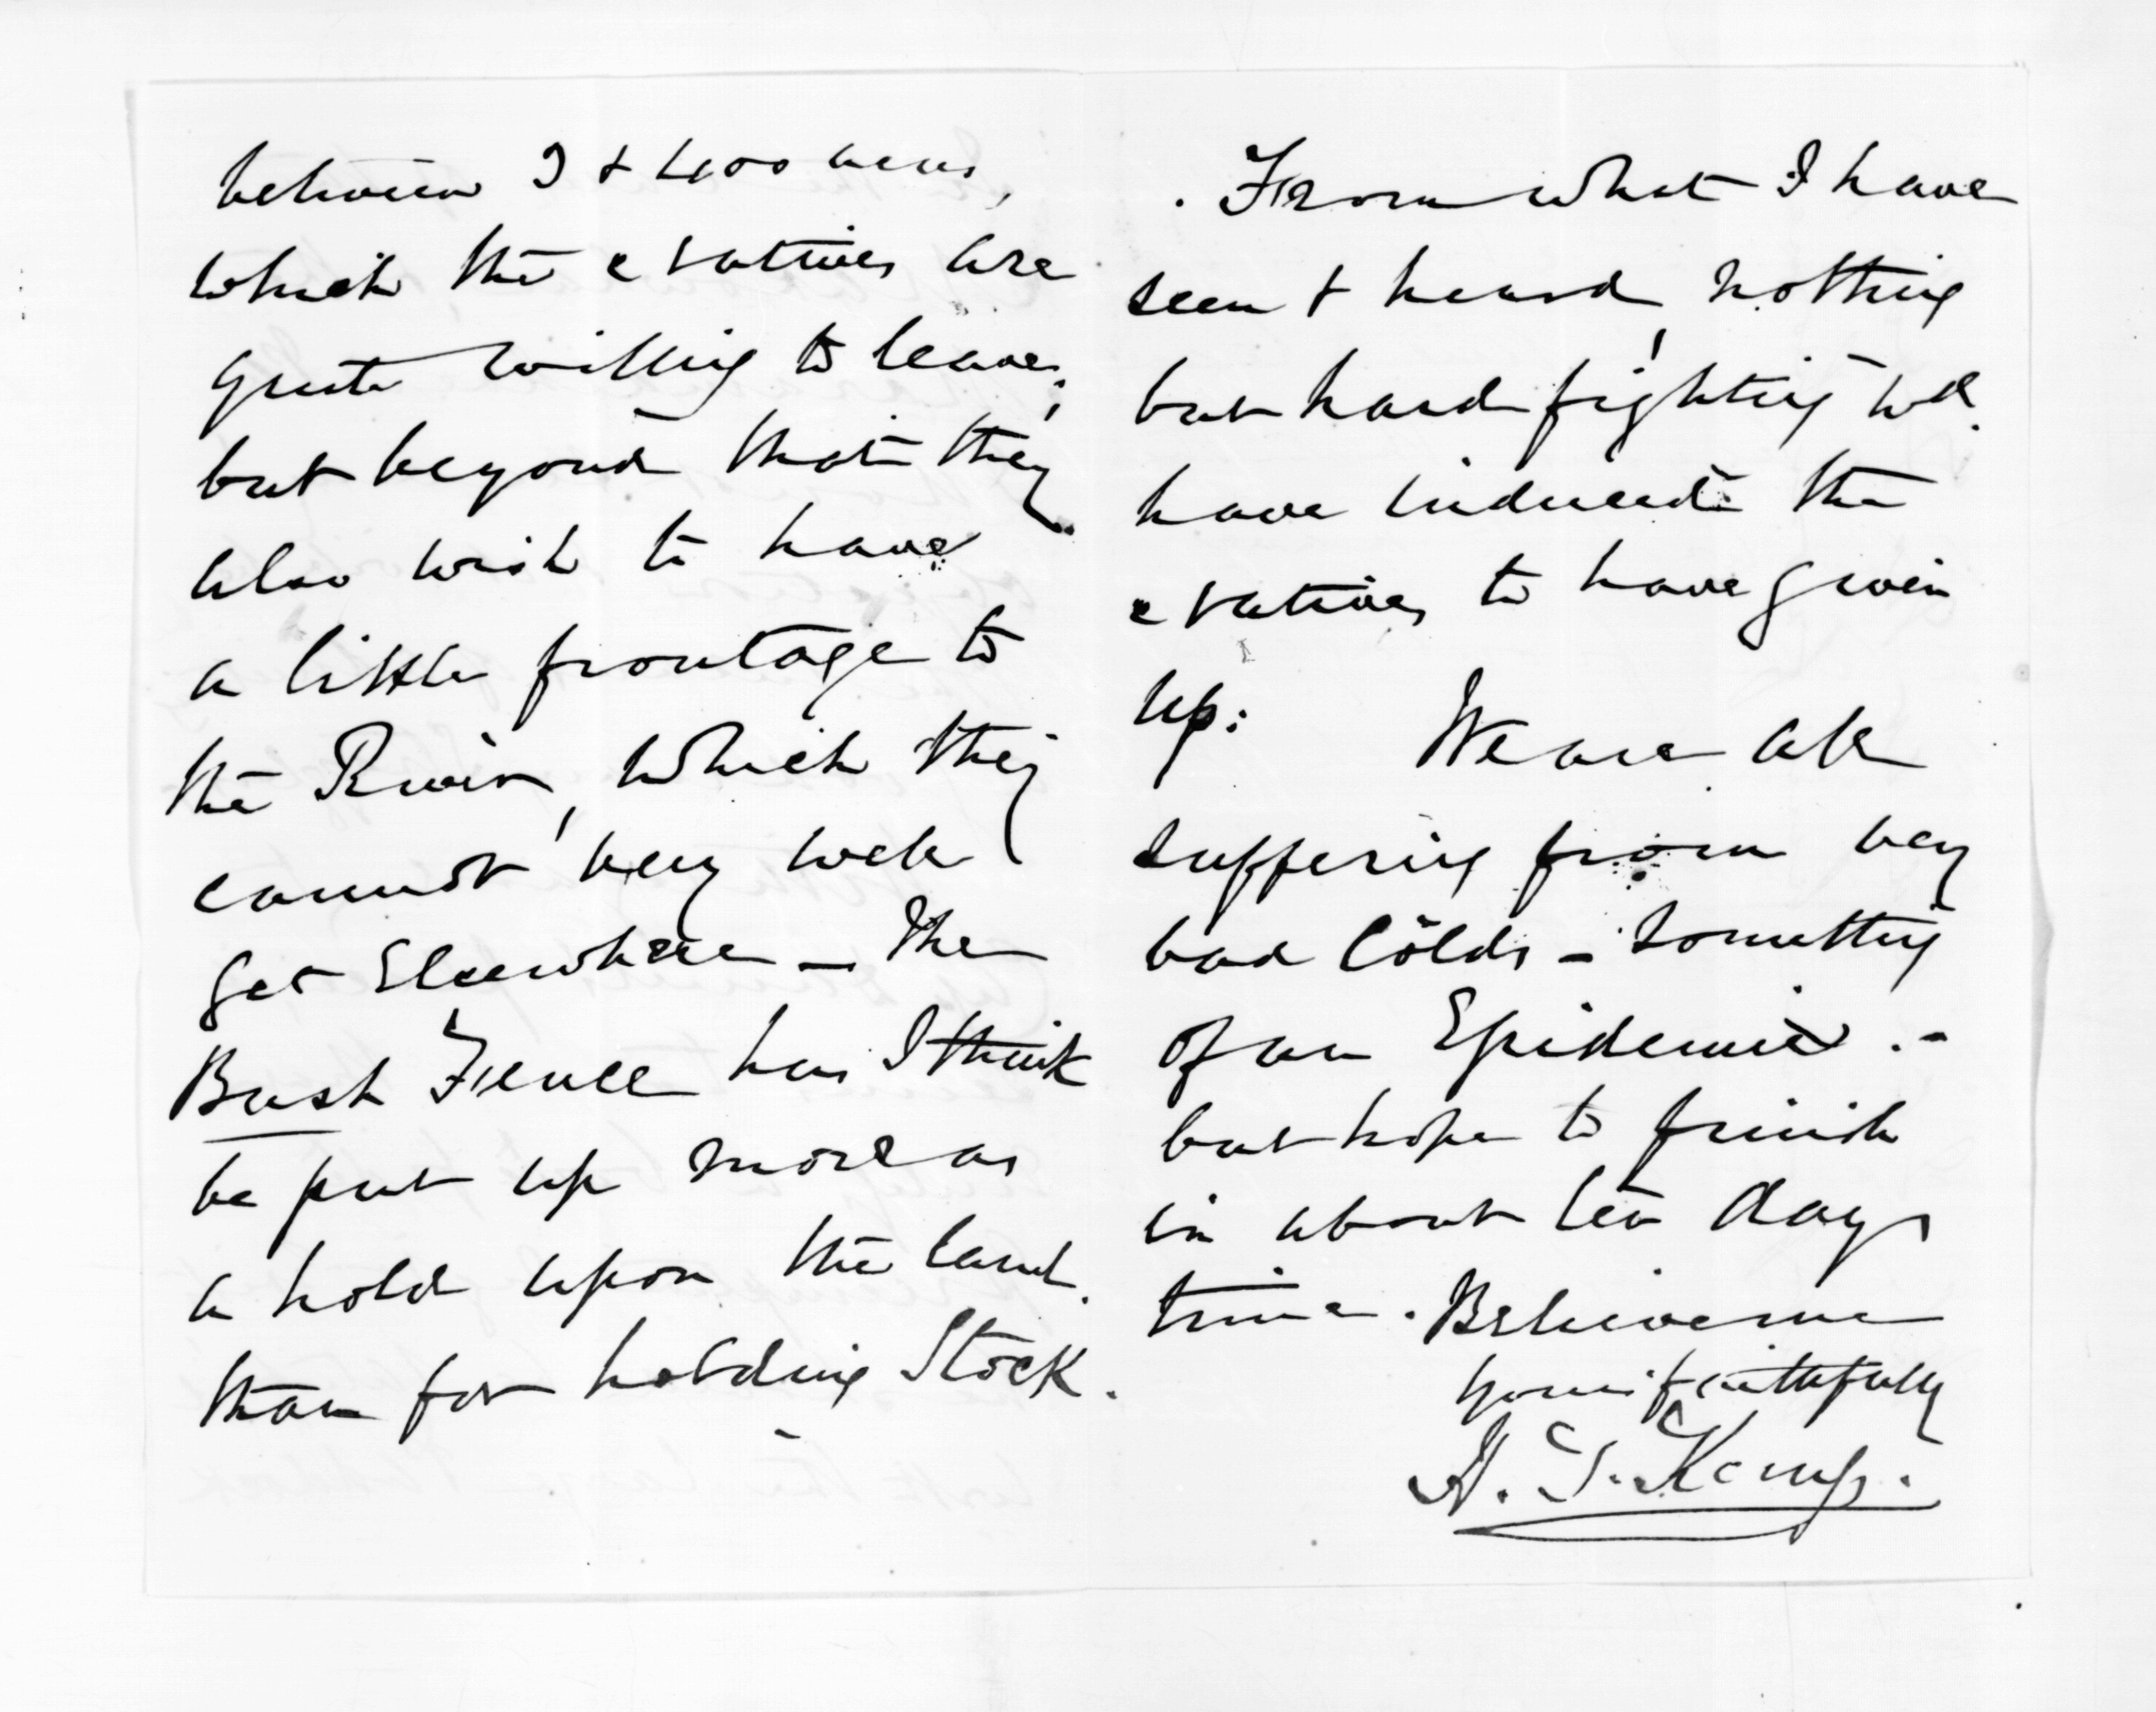 between 3 & 400 acres,
which the Natives are
quite willing to leave;
but beyond that they
also wish to have
a little frontage to
the River, which they
cannot very well
get Elsewhere _ The
Bush Fence has I think
be put up more as
a hold upon the land.
than for holding Stock.
From what I have
seen & heard, nothing
but hard fighting wd.
have induced the
Natives to have given
up: We are all
suffering from very
bad Colds - Something
of an Epidemic . -
but hope to finish
in about ten days
time. Believe me
yours faithfully
H. T. Kemp.